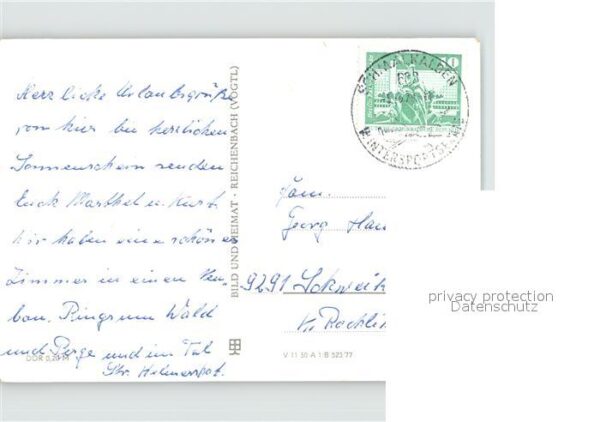 Herzliche Urlaubsgrüße
von hier bei herrlichem
Sonnenschein senden
Euch Marthel u. Kurt.
Wir haben eine schönes
Zimmer in einen Neu-
bau. Ringsum Wald
und Berge und im Tal
DDR 0,20 M
BILD UND HEIMAT · REICHENBACH (VOGTL)
V 11 50 A 1 B 523 77
SCHMALKALDEN
WINTERSPORT
Fam.
Georg Han
9291 Schweik
Kr. Rochli
privacy protection
Datenschutz